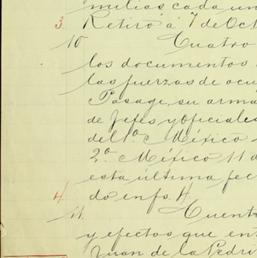 milias cada un
3. Retiro á 7 de Oct
10 Cuatro
los documentos
las fuerzas de ocu
Pasage, su arma
de Jefes y oficiales
del 1º México
2º México 11 d
esta última fec
4. do enfs. A
11 Cuent
y efectos que en
Juan de la Pedri